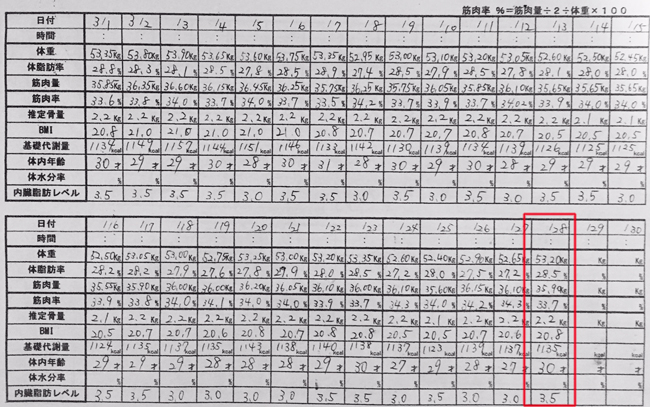 筋肉率 %=筋肉量÷2÷体重×100
日付 3/1 3/2 /3 /4 /5 /6 /7 /8 /9 /10 /11 /12 /13 /14 /15
時間 : : : : : : : : : : : : : : :
体重 53.35Kg 53.80Kg 53.90Kg 53.65Kg 53.60Kg 53.75Kg 53.35Kg 52.95Kg 53.00Kg 53.10Kg 53.20Kg 53.05Kg 52.60Kg 52.50Kg 52.45Kg
体脂肪率 28.8% 28.3% 28.1% 28.5% 27.8% 28.5% 28.9% 27.4% 28.5% 27.9% 28.5% 27.8% 28.1% 28.0% 28.0%
筋肉量 35.85Kg 36.35Kg 36.60Kg 36.15Kg 36.45Kg 36.25Kg 35.75Kg 36.25Kg 35.75Kg 36.05Kg 35.85Kg 36.10Kg 35.65Kg 35.65Kg 35.65Kg
筋肉率 33.6% 33.8% 34.0% 33.7% 34.0% 33.7% 33.5% 34.2% 33.7% 33.9% 33.7% 34.0% 33.9% 34.0% 34.0%
推定骨量 2.2Kg 2.2Kg 2.2Kg 2.2Kg 2.2Kg 2.2Kg 2.2Kg 2.2Kg 2.2Kg 2.2Kg 2.2Kg 2.2Kg 2.2Kg 2.1Kg 2.1Kg
BMI 20.8 21.0 21.0 21.0 21.0 21.0 20.8 20.7 20.7 20.7 20.8 20.7 20.5 20.5 20.5
基礎代謝量 1134kcal 1149kcal 1157kcal 1144kcal 1151kcal 1146kcal 1133kcal 1142kcal 1130kcal 1139kcal 1134kcal 1139kcal 1126kcal 1125kcal 1125kcal
体内年齢 30才 29才 29才 30才 28才 30才 31才 28才 30才 29才 30才 28才 29才 29才 29才
体水分率 % % % % % % % % % % % % % % %
内臓脂肪レベル 3.5 3.5 3.5 3.5 3.0 3.5 3.5 3.0 3.5 3.0 3.5 3.0 3.5 3.5 3.0
日付 /16 /17 /18 /19 /20 /21 /22 /23 /24 /25 /26 /27 /28 /29 /30
時間 : : : : : : : : : : : : : : :
体重 52.50Kg 53.05Kg 53.00Kg 52.75Kg 53.25Kg 53.00Kg 53.20Kg 53.35Kg 52.60Kg 52.40Kg 52.90Kg 52.65Kg 53.20Kg Kg Kg
体脂肪率 28.2% 28.2% 27.9% 27.6% 27.8% 27.9% 28.0% 28.5% 27.2% 28.0% 27.5% 27.2% 28.5% % %
筋肉量 35.55Kg 35.90Kg 36.00Kg 36.00Kg 36.20Kg 36.05Kg 36.10Kg 36.00Kg 36.10Kg 35.60Kg 36.15Kg 36.10Kg 35.90Kg Kg Kg
筋肉率 33.9% 33.8% 34.0% 34.1% 34.0% 34.0% 33.9% 33.7% 34.3% 34.0% 34.2% 34.3% 33.7% % %
推定骨量 2.1Kg 2.2Kg 2.2Kg 2.2Kg 2.2Kg 2.2Kg 2.2Kg 2.2Kg 2.2Kg 2.1Kg 2.2Kg 2.2Kg 2.2Kg Kg Kg
BMI 20.5 20.7 20.7 20.6 20.8 20.7 20.8 20.8 20.5 20.5 20.7 20.6 20.8
基礎代謝量 1124kcal 1135kcal 1137kcal 1135kcal 1143kcal 1138kcal 1140kcal 1138kcal 1137kcal 1123kcal 1139kcal 1137kcal 1135kcal kcal kcal
体内年齢 29才 29才 29才 28才 28才 28才 29才 30才 27才 29才 28才 27才 30才 才 才
体水分率 % % % % % % % % % % % % % % %
内臓脂肪レベル 3.5 3.5 3.0 3.0 3.0 3.0 3.5 3.5 3.0 3.0 3.0 3.0 3.5